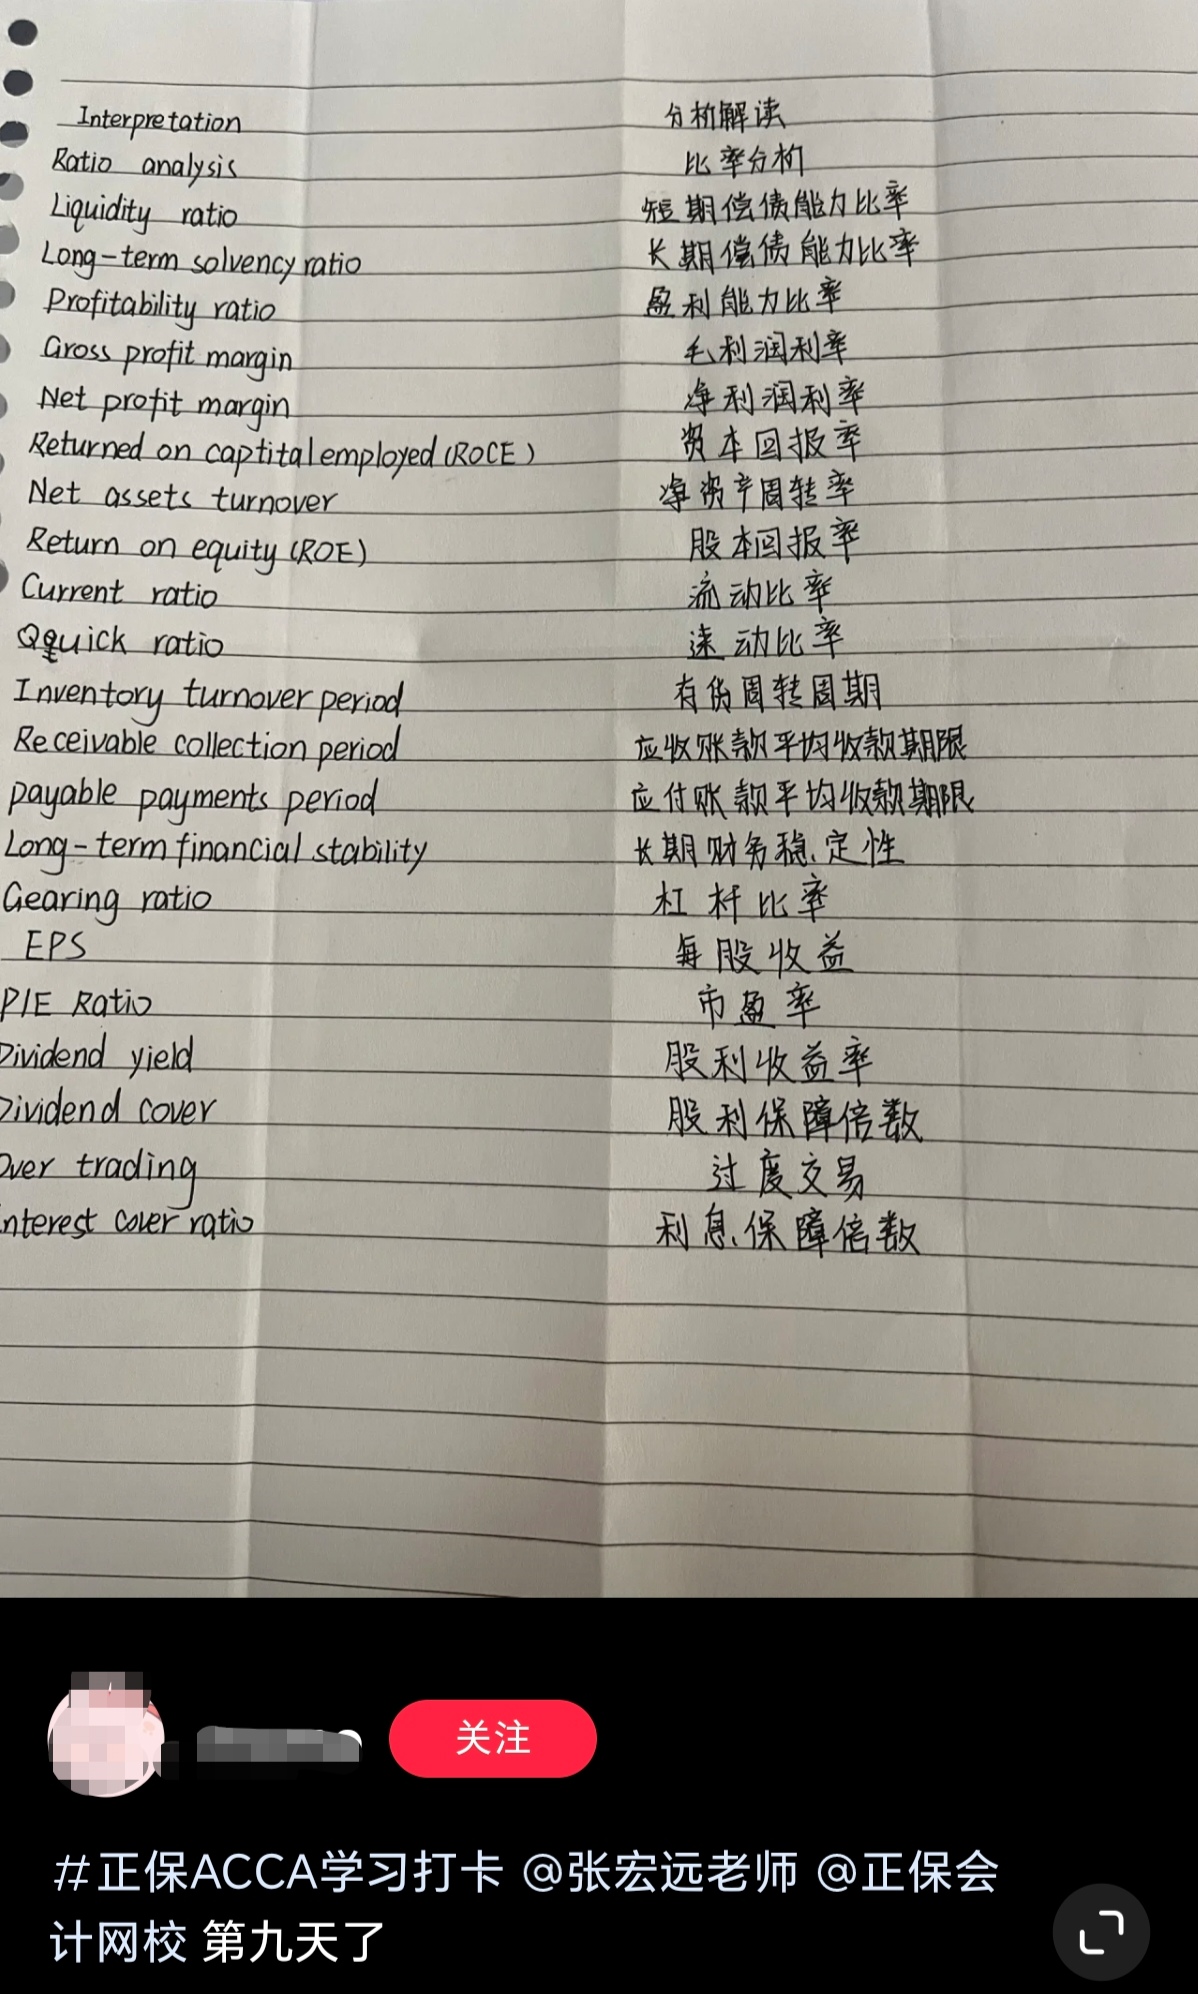 Interpretation 分析解读
Ratio analysis 比率分析
Liquidity ratio 短期偿债能力比率
Long-term solvency ratio 长期偿债能力比率
Profitability ratio 盈利能力比率
Gross profit margin 毛利润利率
Net profit margin 净利润利率
Returned on captital employed (ROCE) 资本回报率
Net assets turnover 净资产周转率
Return on equity (ROE) 股本回报率
Current ratio 流动比率
Qquick ratio 速动比率
Inventory turnover period 存货周转周期
Receivable collection period 应收账款平均收款期限
payable payments period 应付账款平均收款期限
Long-term financial stability 长期财务稳定性
Gearing ratio 杠杆比率
EPS 每股收益
P/E Ratio 市盈率
Dividend yield 股利收益率
Dividend cover 股利保障倍数
Over trading 过度交易
Interest cover ratio 利息保障倍数
关注
#正保ACCA学习打卡 @张宏远老师 @正保会
计网校 第九天了